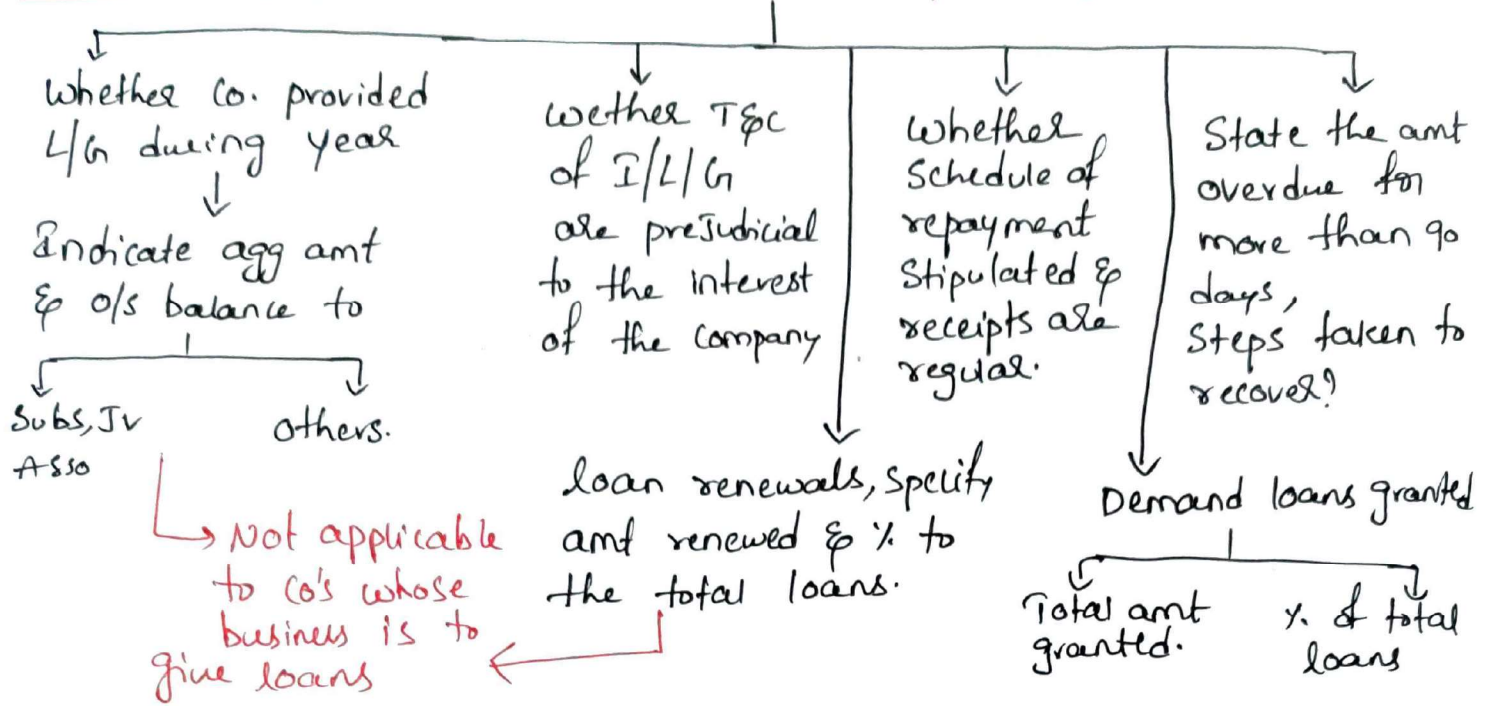 Whether Co. provided
L/G during year
Indicate agg amt
& o/s balance to
Subs, JV
Asso
others.
Not applicable
to Co's whose
business is to
give loans
wether T&C
of I/L/G
are prejudicial
to the interest
of the Company
loan renewals, specify
amt renewed & % to
the total loans.
Whether
Schedule of
repayment
Stipulated &
receipts are
regular.
State the amt
overdue for
more than 90
days,
Steps taken to
recover?
Demand loans granted
Total amt
granted.
% of total
loans